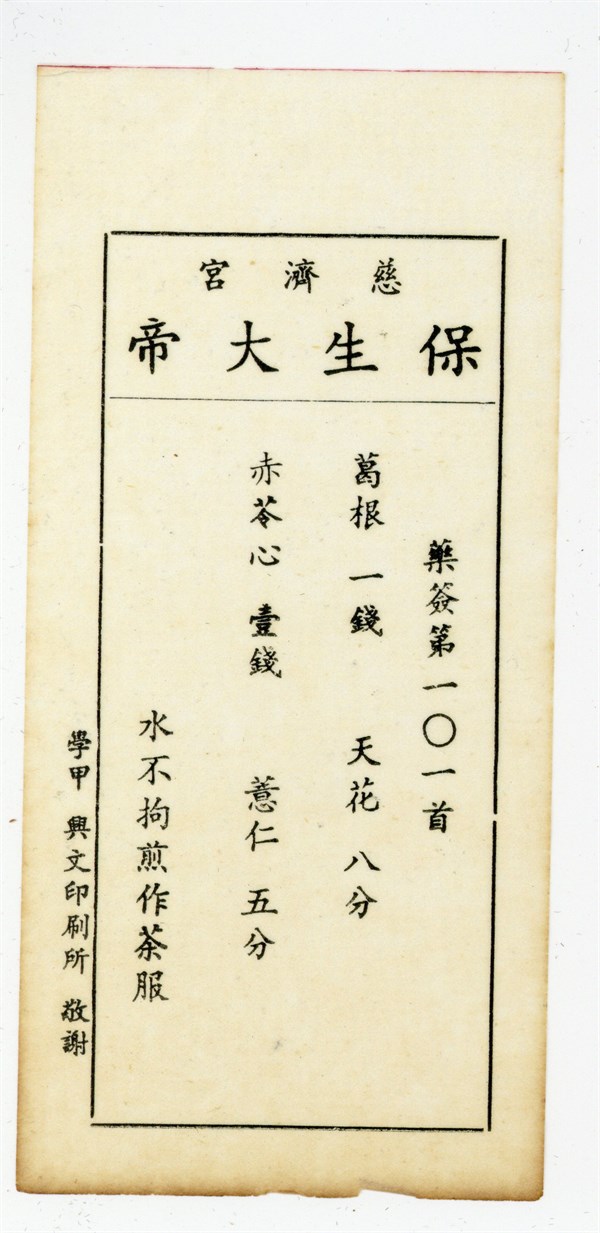 慈濟宮
保生大帝
藥簽第一〇一首
葛根 一錢 天花 八分
赤苓心 壹錢 薏仁 五分
水不拘煎作茶服
學甲 興文印刷所 敬謝